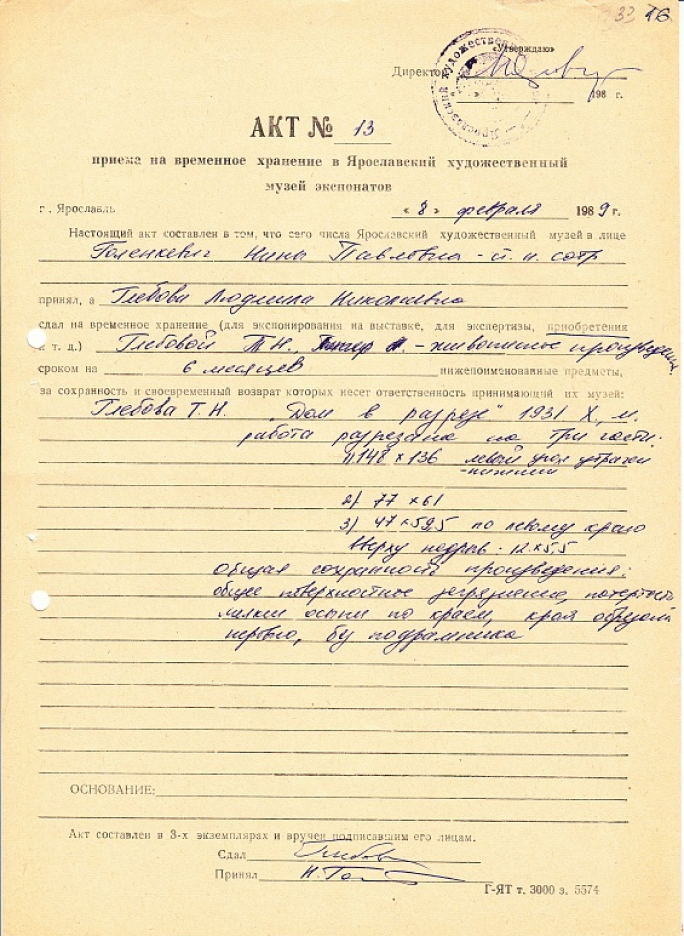 33 16
«Утверждаю»
Директор
198 г.
Ярославский художественный
АКТ № 13
приема на временное хранение в Ярославский художественный
музей экспонатов
г. Ярославль « 8 » февраля 1989 г.
Настоящий акт составлен в том, что сего числа Ярославский художественный музей в лице
Голенкевич Нины Павловна - н. сотр
принял, а Глебова Людмила Николаевна
сдал на временное хранение (для экспонирования на выставке, для экспертизы, приобретения
и т. д.) Глебовой Т.Н. - живописное произведен.
сроком на 6 месяцев нижепоименованные предметы,
за сохранность и своевременный возврат которых несет ответственность принимающий их музей:
Глебова Т.Н. „Дом в разрезе" 1931 Х, м.
работа разрезана на три части:
1) 148 × 136 левый угол утрачен
- нижний
2) 77 × 61
3) 47 × 59,5 по левому краю
вверху надрыв: 12 × 5,5
Общая сохранность произведения:
общее поверхностное загрязнение, потертость
мелкие осыпи по краем, края обрезаны
неровно, без подрамника
ОСНОВАНИЕ:
Акт составлен в 3-х экземплярах и вручен подписавшим его лицам.
Сдал Глебова
Принял Н. Гол
Г-ЯТ т. 3000 з. 5574